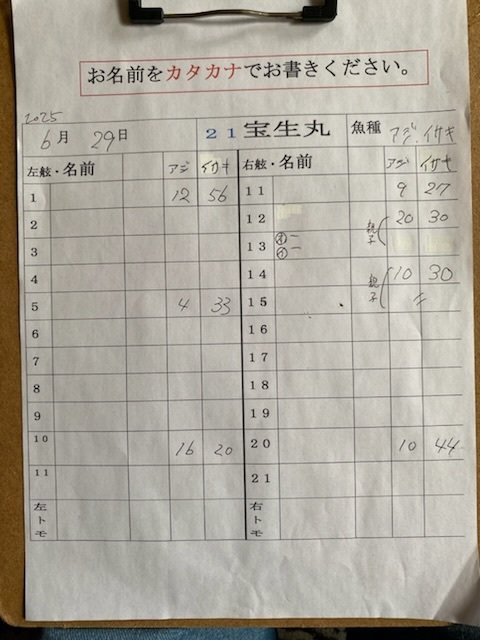 お名前をカタカナでお書きください。
2025
6月 29日 21宝生丸 魚種 アジ、イサキ
左舷・名前 アジ イサキ 右舷・名前 アジ イサキ
1 12 56 11 9 27
2 12 親子 20 30
3 13 オー イー
4 14 親子 10 30
5 4 33 15 〃
6 16
7 17
8 18
9 19
10 16 20 20 10 44
11 21
左トモ 右トモ